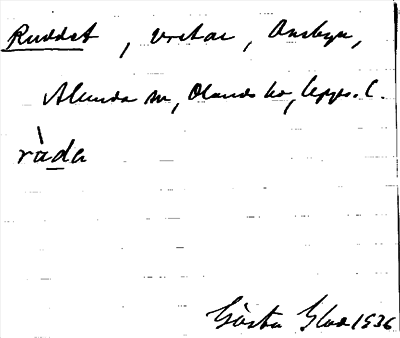 Ruddet, vretar, Ansbyn,
Alunda sn, Olands hd, Upps. l.
råda
Gösta Glad 1936